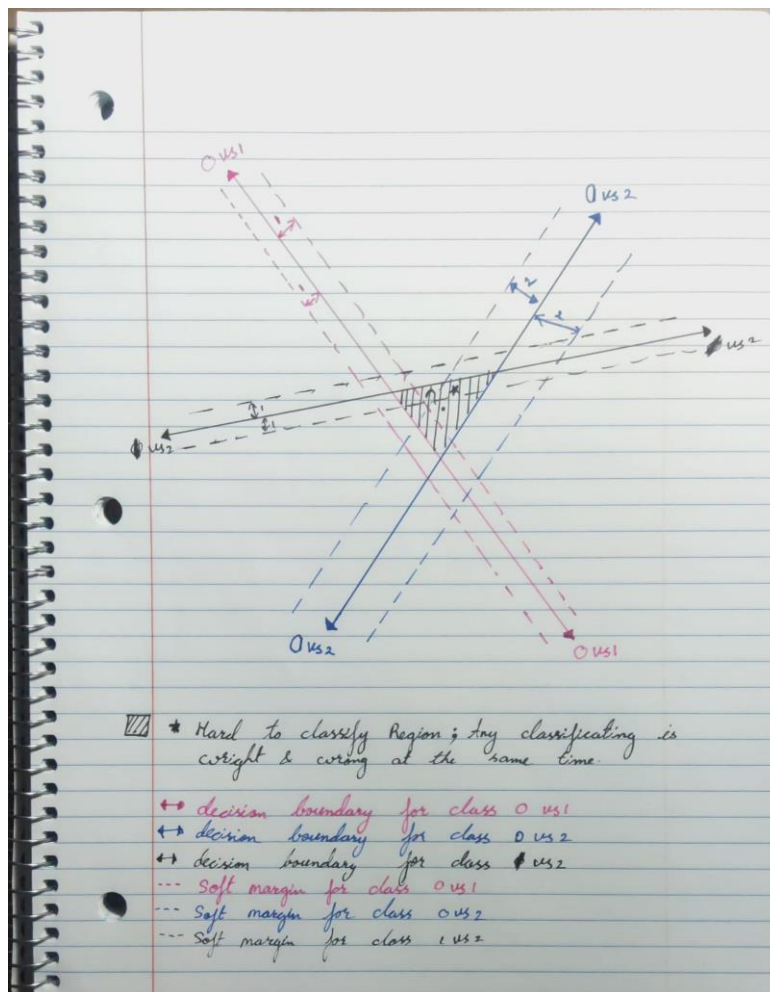 0 vs1
0 vs2
2
2
vs2
1
1
vs2
0 vs2
0 vs1
* Hard to classify Region ; Any classificating is
wright & wrong at the same time.
decision boundary for class 0 vs1
decision boundary for class 0 vs2
decision boundary for class 1 vs2
Soft margin for class 0 vs1
Soft margin for class 0 vs2
Soft margin for class 1 vs2